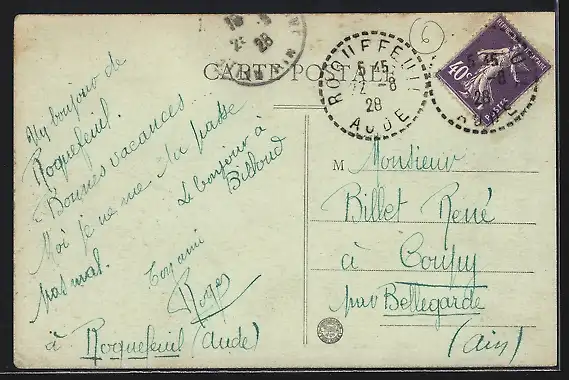 CARTE POSTALE
ROQUEFEUIL
5 45
22 -8
28
AUDE
40c
POSTES
5 45
-8
28
6
My bonjour de
Roquefeuil.
Bonnes vacances.
Moi je ne me la passe
pas mal.
Le bonjour à
Billoud
Ton ami
Roger
à Roquefeuil (Aude)
M Monsieur
Billet René
à Coupy
par Bellegarde
(Ain)